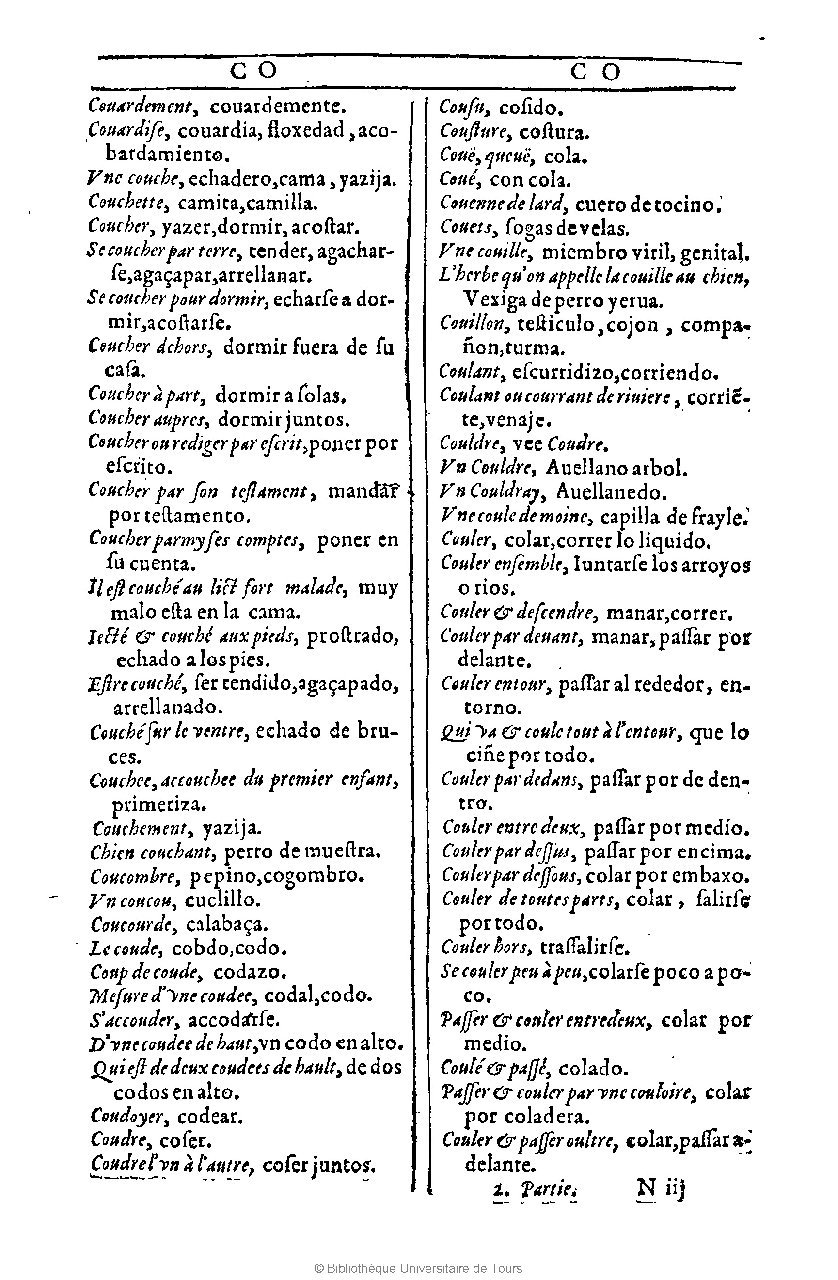 C O
Couardement, couardemente.
Couardiſe, couardia, floxedad, aco-
bardamiento.
Vne couche, echadero, cama, yazija.
Couchette, camita, camilla.
Coucher, yazer, dormir, acoſtar.
Se coucher par terre, tender, agachar-
ſe, agaçapar, arrellanar.
Se coucher pour dormir, echarſe a dor-
mir, acoſtarſe.
Coucher dehors, dormir fuera de ſu
caſa.
Coucher à part, dormir a ſolas.
Coucher aupres, dormir juntos.
Coucher ou rediger par eſcrit, poner por
eſcrito.
Coucher par ſon teſtament, mandar
por teſtamento.
Coucher parmy ſes comptes, poner en
ſu cuenta.
Il eſt couché au lict fort malade, muy
malo eſta en la cama.
Iecté & couché aux pieds, proſtrado,
echado a los pies.
Eſtre couché, ſer tendido, agaçapado,
arrellanado.
Couché ſur le ventre, echado de bru-
ces.
Couchee, accouchee du premier enfant,
primeriza.
Couchement, yazija.
Chien couchant, perro de mueſtra.
Coucombre, pepino, cogombro.
Vn coucou, cuclillo.
Coucourde, calabaça.
Le coude, cobdo, codo.
Coup de coude, codazo.
Meſure d'vne coudee, codal, codo.
S'accouder, accodarſe.
D'vne coudee de haut, vn codo en alto.
Qui eſt de deux coudees de hault, de dos
codos en alto.
Coudoyer, codear.
Coudre, coſer.
Coudre l'vn à l'autre, coſer juntos.
C O
Couſu, coſido.
Couſture, coſtura.
Couë, queuë, cola.
Coué, con cola.
Couenne de lard, cuero de tocino.
Couets, ſogas de velas.
Vne couille, miembro viril, genital.
L'herbe qu'on appelle la couille au chien,
Vexiga de perro yerua.
Couillon, teſticulo, cojon, compa-
ñon, turma.
Coulant, eſcurridizo, corriendo.
Coulant ou courrant de riuiere, corriẽ-
te, venaje.
Couldre, vee Coudre.
Vn Couldre, Auellano arbol.
Vn Couldray, Auellanedo.
Vne coule de moine, capilla de frayle.
Couler, colar, correr lo liquido.
Couler enſemble, Iuntarſe los arroyos
o rios.
Couler & deſcendre, manar, correr.
Couler par deuant, manar, paſſar por
delante.
Couler entour, paſſar al rededor, en-
torno.
Qui va & coule tout à l'entour, que lo
ciñe por todo.
Couler par dedans, paſſar por de den-
tro.
Couler entre deux, paſſar por medio.
Couler par deſſus, paſſar por encima.
Couler par deſſous, colar por embaxo.
Couler de toutes parts, colar, ſalirſe
por todo.
Couler hors, traſſalirſe.
Se couler peu à peu, colarſe poco a po-
co.
Paſſer & couler entredeux, colar por
medio.
Coulé & paſſé, colado.
Paſſer & couler par vne couloire, colar
por coladera.
Couler & paſſer oultre, colar, paſſar a-
delante.
2. Partie. N iij
© Bibliothèque Universitaire de Tours